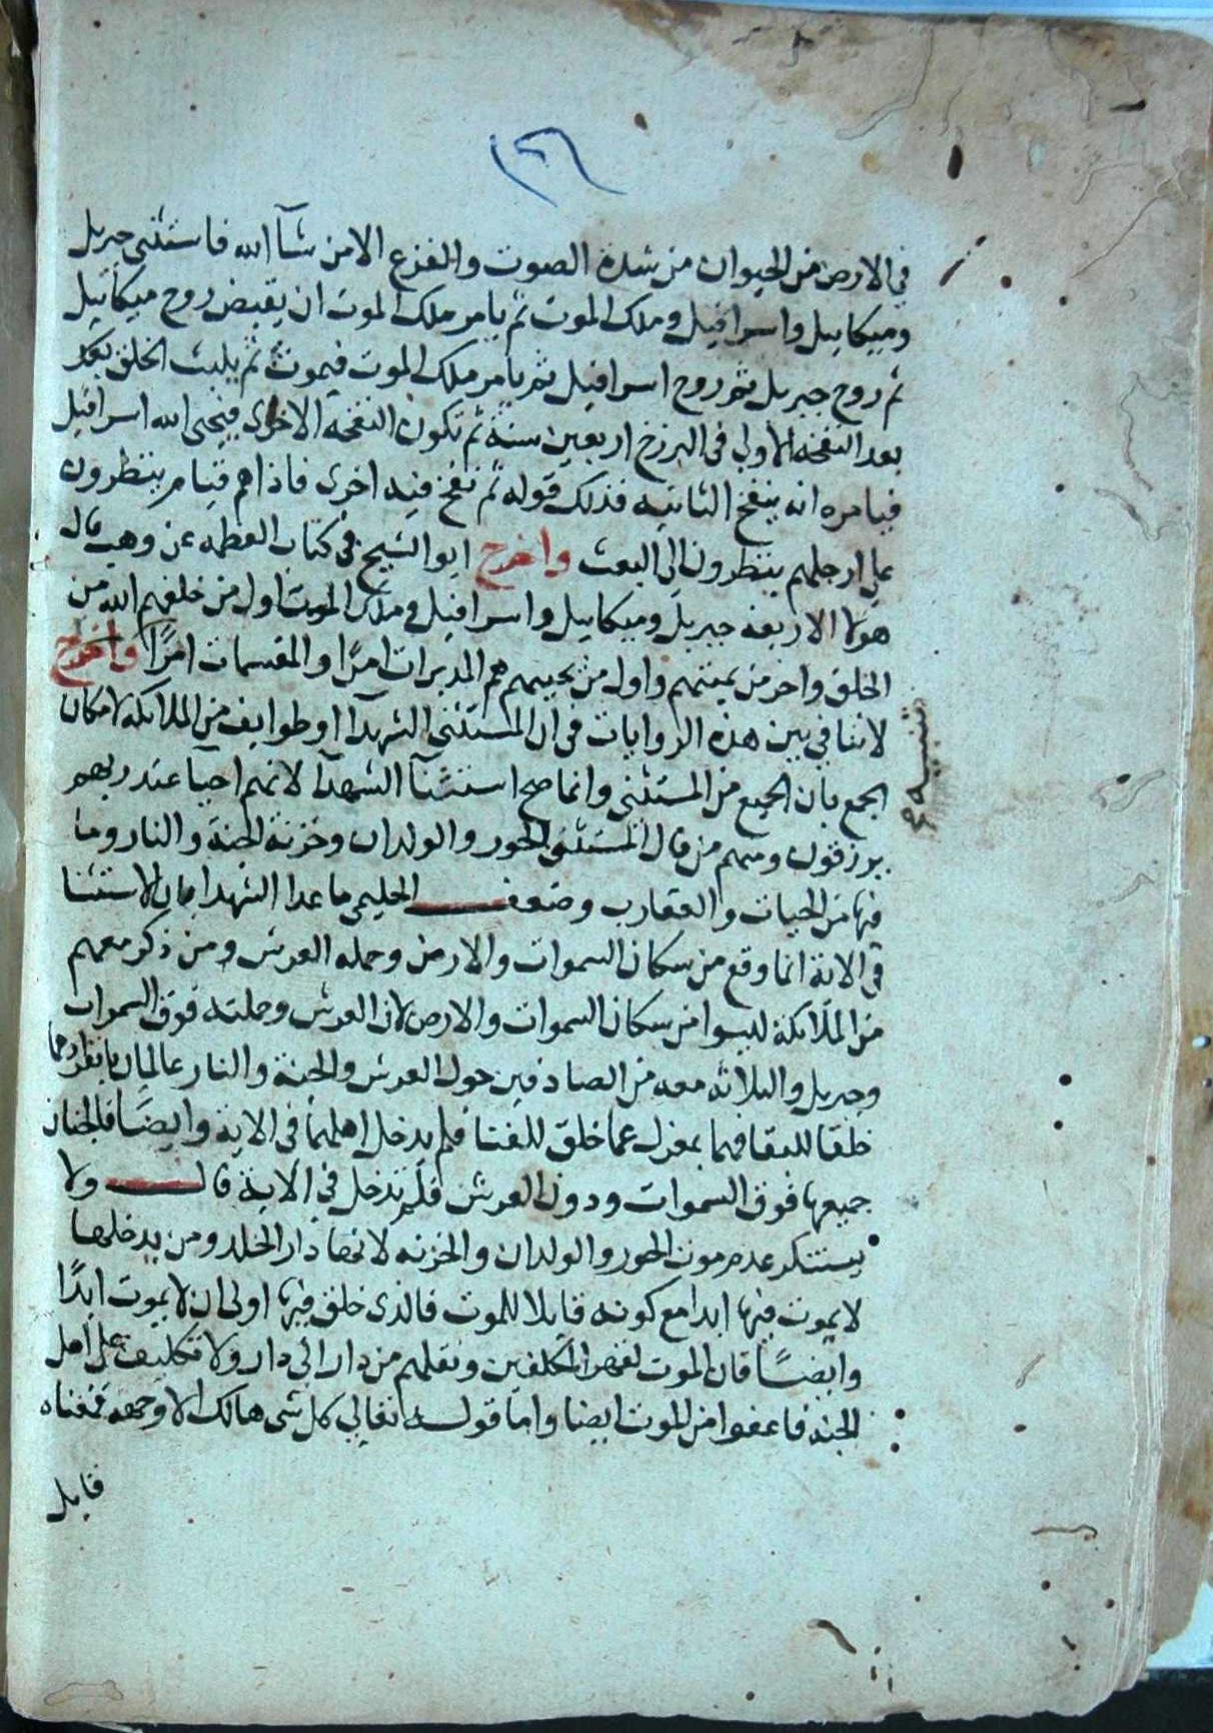 (٢٦
في الارض من الحيوان من شدة الصوت والفزع الا من شآ الله فاستثنى جبريل
وميكاييل واسرافيل وملك الموت ثم يامر ملك الموت ان يقبض روح ميكاييل
ثم روح جبريل ثم روح اسرافيل ثم يامر ملك الموت فيموت ثم يلبث الخلق بعد
بعد النفخة الاولي في البرزخ اربعين سنة ثم تكون النفخة الاخرى فيحيى الله اسرافيل
فيامره انه ينفخ الثانيه فذلك قوله ثم نفخ فيه اخرى فاذاهم قيام ينظرون
على ارجلهم ينتظرون الي البعث واخرج ابو الشيخ في كتاب العظمه عن وهب قال
هولا الاربعه جبريل وميكاييل واسرافيل وملك الموت اول من خلقهم الله من
الخلق واخر من يميتهم واول من يحييهم هم المدبرات امرًا والمقسمات امرًا واخرج
لا تنافي بين هذه الروايات في ان المستثنى الشهدآ او طوايف من الملائكة لامكان
الجمع بان الجميع من المستثنى وانما صح استثنآ الشهدآ لانهم احيآ عند ربهم
يرزقون ومنهم من قال المستثنى الحور والولدان وخزنة الجنة والنار وما
فيها من الحيات والعقارب وضعف الحليمي ما عدا الشهدا بان الاستثنا
في الاية انما وقع من سكان السموات والارض وحمله العرش ومن ذكر معهم
من الملائكة ليسوا من سكان السموات والارض لان العرش وحملته فوق السموات
وجبريل والثلاثه معه من الصافين حول العرش والجنة والنار عالمان بانفرادهما
خلقا للبقا فهما بمعزل عما خلق للفنا فلم يدخل اهلهما في الاية وايضًا فالجنان
جميعها فوق السموات ودون العرش فلم تدخل في الاية قال ولا
يستنكر عدم موت الحور والولدان والخزنه لانها دار الخلد ومن يدخلها
لا يموت فيها ابدا مع كونه قابلا للموت فالذى خلق فيها اولى ان لا يموت ابدًا
وايضًا فان الموت لقهر المكلفين ونقلهم من دار الي دار ولا تكليف على اهل
الجنه فاعفوا من الموت ايضا واما قوله تعالي كل شى هالك الا وجهه فمعناه
قابل
تنبيه